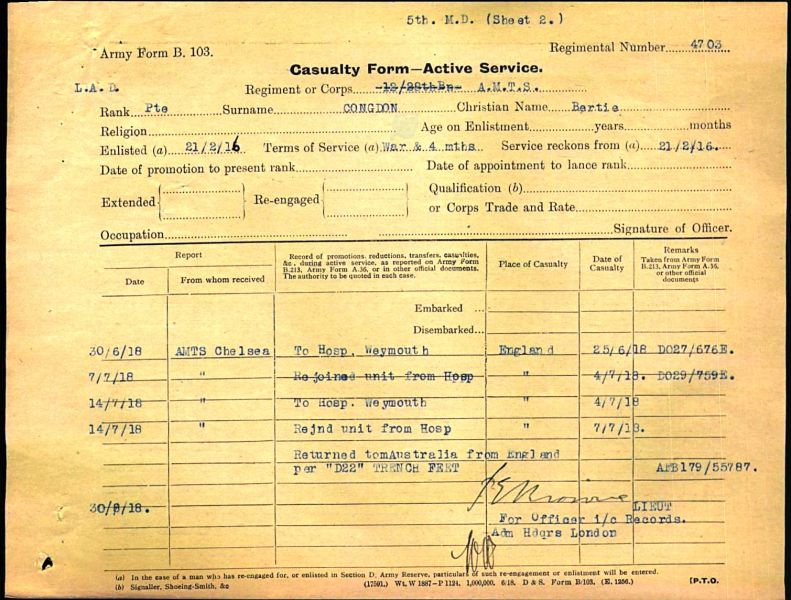 5th. M.D. (Sheet 2.)
Army Form B. 103.
Regimental Number 4703
Casualty Form—Active Service.
L.A.D. Regiment or Corps 12/28thBn- A.M.T.S.
Rank Pte Surname CONGDON Christian Name Bertie
Religion Age on Enlistment years months
Enlisted (a) 21/2/16 Terms of Service (a) War & 4 mths Service reckons from (a) 21/2/16.
Date of promotion to present rank Date of appointment to lance rank
Extended Re-engaged Qualification (b)
or Corps Trade and Rate
Occupation Signature of Officer.
Report
Date
From whom received
Record of promotions, reductions, transfers, casualties,
&c., during active service, as reported on Army Form
B.213, Army Form A.36, or in other official documents.
The authority to be quoted in each case.
Place of Casualty
Date of
Casualty
Remarks
Taken from Army Form
B.213, Army Form A.36,
or other official
documents
Embarked ...
Disembarked...
30/6/18 AMTS Chelsea To Hosp. Weymouth England 25/6/18 DO27/676E.
7/7/18 " Rejoined unit from Hosp " 4/7/18. DO29/759E.
14/7/18 " To Hosp. Weymouth " 4/7/18
14/7/18 " Rejnd unit from Hosp " 7/7/18.
Returned tomAustralia from England
per "D22" TRENCH FEET AFB179/55787.
30/8/18. LIEUT
For Officer i/c Records.
Adm Hdqrs London
(a) In the case of a man who has re-engaged for, or enlisted in Section D, Army Reserve, particulars of such re-engagement or enlistment will be entered.
(b) Signaller, Shoeing-Smith, &c
(17591.) Wt. W 1887—P 1124. 1,000,000. 6/18. D & S. Form B/103. (E. 1256.) [P.T.O.